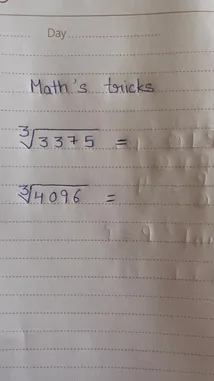 Day
Math's tricks
∛3375 =
∛4096 =